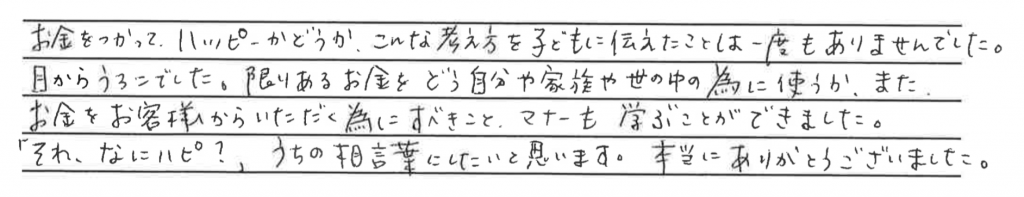 お金をつかって、ハッピーかどうか、こんな考え方を子どもに伝えたことは一度もありませんでした。
目からうろこでした。限りあるお金をどう自分や家族や世の中の為に使うか、また、
お金をお客様からいただく為にすべきこと、マナーも学ぶことができました。
「それ、なにハピ?」うちの相言葉にしたいと思います。本当にありがとうございました。